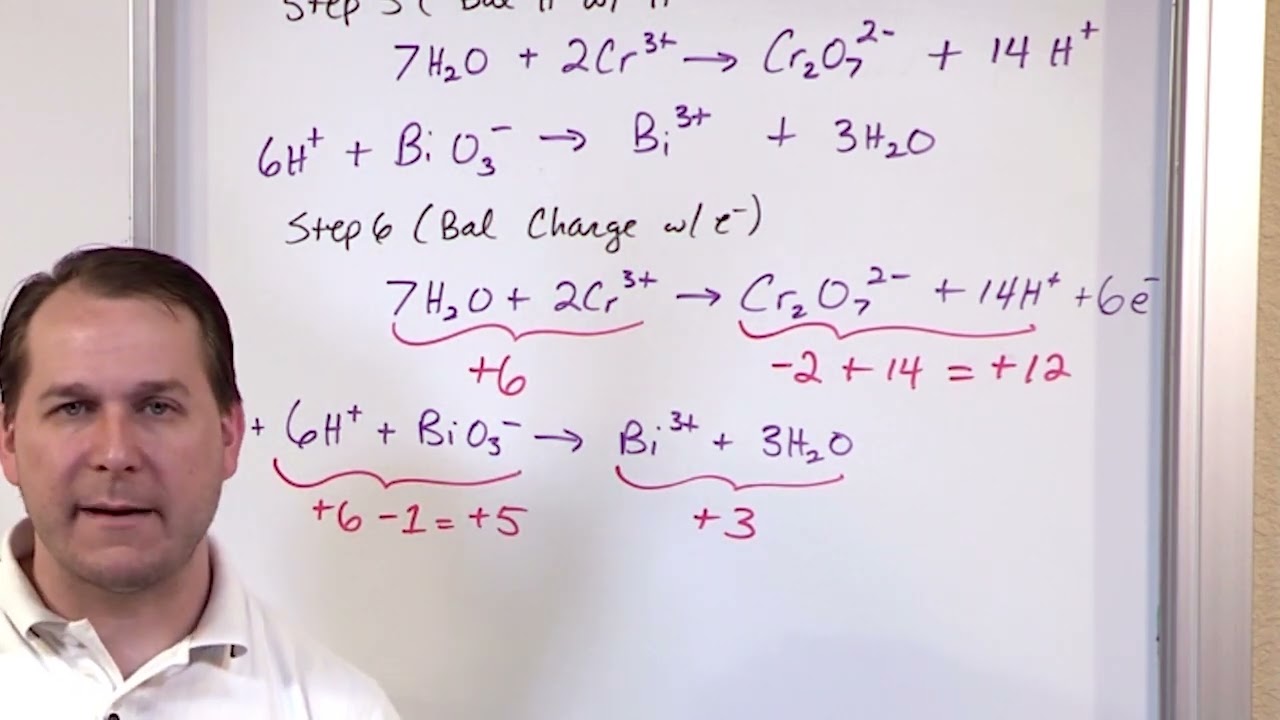 Step 5 (Bal H w/ H
7H₂O + 2Cr³⁺ → Cr₂O₇²⁻ + 14 H⁺
6H⁺ + BiO₃⁻ → Bi³⁺ + 3H₂O
Step 6 (Bal Charge w/ e⁻)
7H₂O + 2Cr³⁺ → Cr₂O₇²⁻ + 14H⁺ + 6e⁻
+6 -2 + 14 = +12
+ 6H⁺ + BiO₃⁻ → Bi³⁺ + 3H₂O
+6 -1 = +5 +3